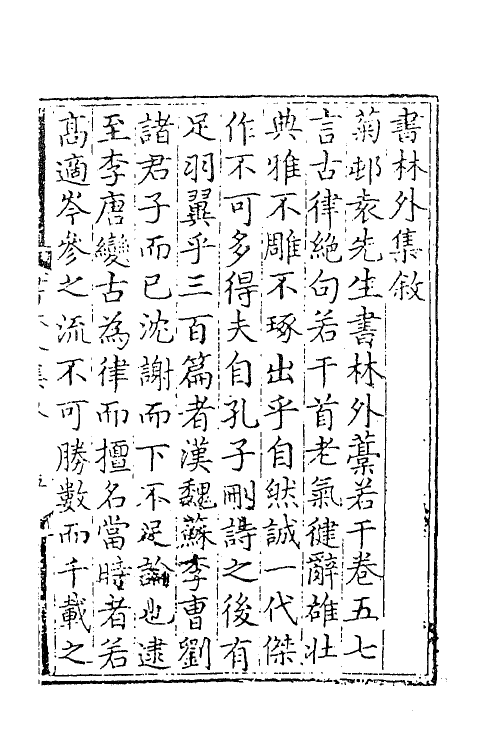 書林外集敘
菊邨袁先生書林外藁若干卷五七
言古律絕句若干首老氣健辭雄壯
典雅不雕不琢出乎自然誠一代傑
作不可多得夫自孔子刪詩之後有
足羽翼乎三百篇者漢魏蘇李曹劉
諸君子而已沈謝而下不足論也逮
至李唐變古為律而擅名當時者若
高適岑參之流不可勝數而千載之